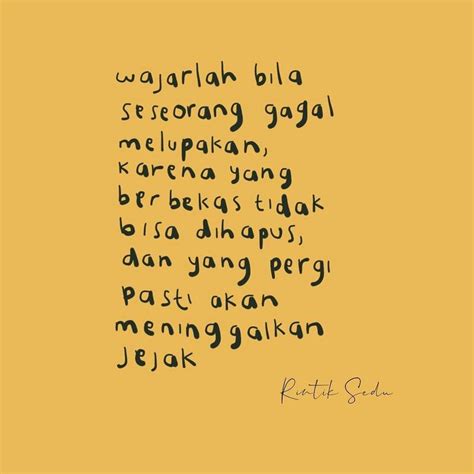 wajarlah bila
seseorang gagal
melupakan,
karena yang
berbekas tidak
bisa dihapus,
dan yang pergi
pasti akan
meninggalkan
jejak
Rintik Sedu